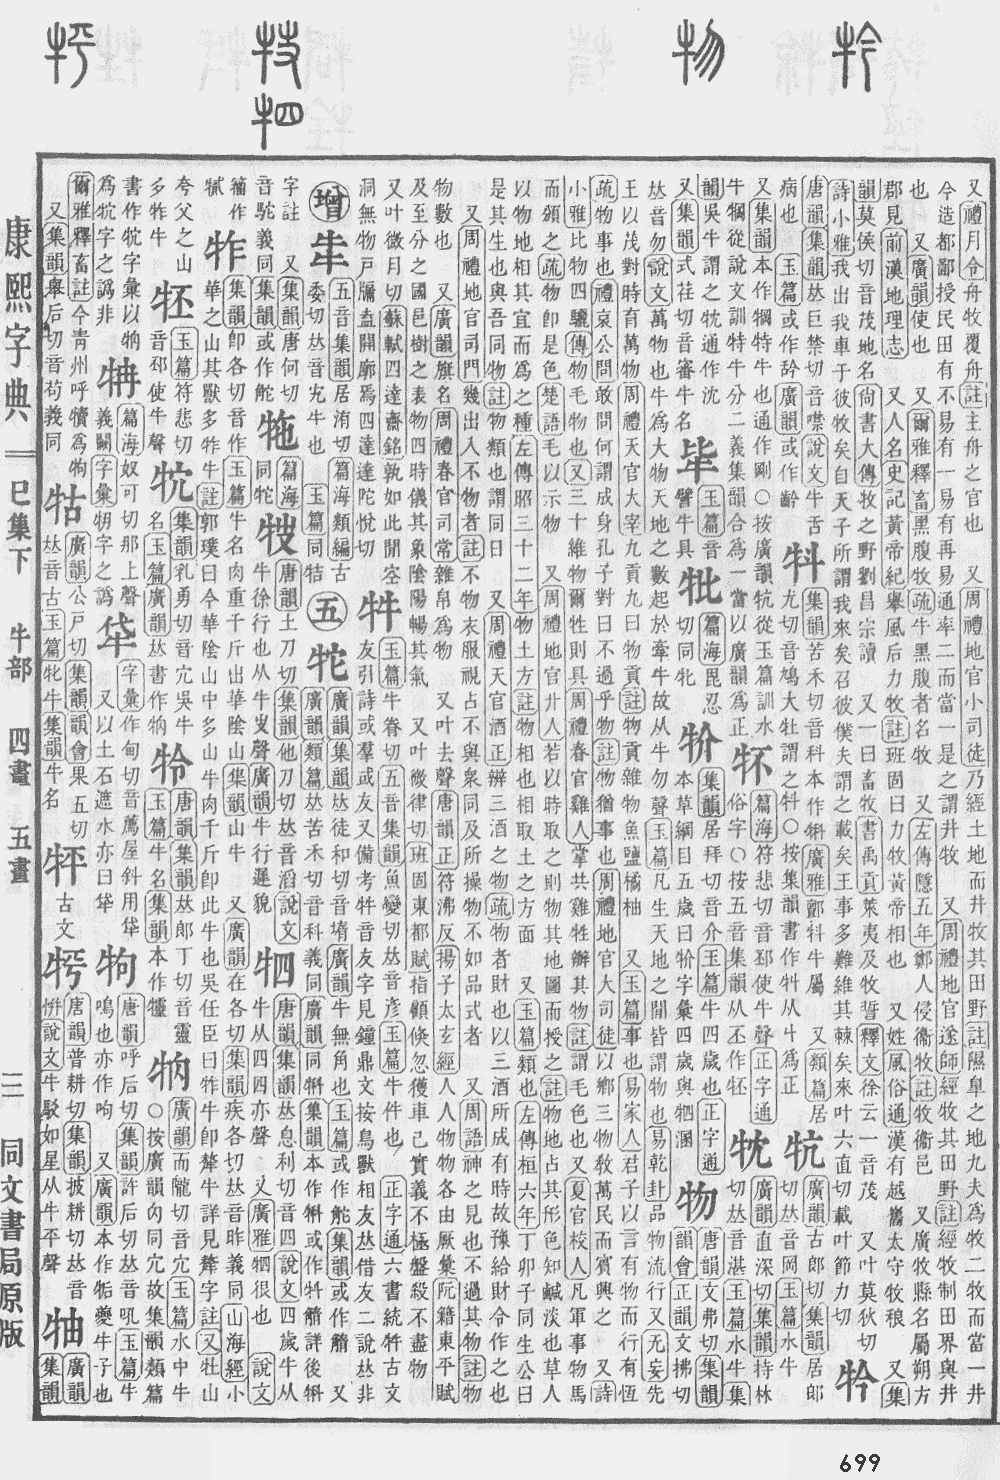 又禮月令舟牧覆舟註主舟之官也 又周禮地官小司徒乃經土地而井牧其田野註隰皐之地九夫爲牧二牧而當一井
今造都鄙授民田有不易有一易有再易通率二而當一是之謂井牧 又周禮地官遂師經牧其田野註經牧制田界與井
也 又廣韻使也 又爾雅釋畜黑腹牧疏牛黑腹者名牧 又左傳隱五年鄭人侵衞牧註牧衞邑 又廣牧縣名屬朔方
郡見前漢地理志 又人名史記黃帝紀舉風后力牧註班固曰力牧黃帝相也 又姓風俗通漢有越巂太守牧稂 又集
韻莫侯切音茂地名尙書大傳牧之野劉昌宗讀 又一曰畜牧書禹貢萊夷及牧誓釋文徐云一音茂 又叶莫狄切
詩小雅我出我車于彼牧矣自天子所謂我來矣召彼僕夫謂之載矣王事多難維其棘矣來叶六直切載叶節力切
唐韻集韻𠀤巨禁切音噤說文牛舌
病也 玉篇或作 廣韻或作齡
集韻苦禾切音科本作犐廣雅 牛屬 又類篇居
尤切音鳩大牡謂之 ○按集韻書作 从丩爲正
牨 廣韻古郎切集韻居郎
切𠀤音岡玉篇水牛
又集韻本作犅特牛也通作剛○按廣韻牨從玉篇訓水
牛犅從說文訓特牛分二義集韻合爲一當以廣韻爲正
篇海符悲切音邳使牛聲正字通
俗字○按五音集韻从丕作
牰 廣韻直深切集韻持林
切𠀤音湛玉篇水牛集
韻吳牛謂之 通作沈
又集韻式荏切音審牛名
玉篇音
譬牛具
篇海毘忍
切同牝
牫 集韻居拜切音介玉篇牛四歲也正字通
本草綱目五歲曰 字彙四歲與牭溷
物 唐韻文弗切集韻
韻會正韻文拂切
𠀤音勿說文萬物也牛爲大物天地之數起於牽牛故从牛勿聲玉篇凡生天地之閒皆謂物也易乾卦品物流行又无妄先
王以茂對時育萬物周禮天官大宰九貢九曰物貢註物貢雜物魚鹽橘柚 又玉篇事也易家人君子以言有物而行有恆
疏物事也禮哀公問敢問何謂成身孔子對曰不過乎物註物猶事也周禮地官大司徒以鄉三物敎萬民而賓興之 又詩
小雅比物四驪傳物毛物也又三十維物爾牲則具周禮春官雞人掌共雞牲辨其物註謂毛色也又夏官校人凡軍事物馬
而頒之疏物卽是色楚語毛以示物 又周禮地官丱人若以時取之則物其地圖而授之註物地占其形色知鹹淡也草人
以物地相其宜而爲之種左傳昭三十二年物土方註物相也相取土之方面 又玉篇類也左傳桓六年丁卯子同生公曰
是其生也與吾同物註物類也謂同日 又周禮天官酒正辨三酒之物疏物者財也以三酒所成有時故豫給財令作之也
又周禮地官司門幾出入不物者註不物衣服視占不與衆同及所操物不如品式者 又周語神之見也不過其物註物
物數也 又廣韻旗名周禮春官司常雜帛爲物 又叶去聲唐韻正符沸反揚子太玄經人人物物各由厥彙阮籍東平賦
及至分之國邑樹之表物四時儀其象陰陽暢其氣 又叶微律切班固東都賦指顧倏忽獲車已實義不極盤殺不盡物
又叶微月切蘇軾四達齋銘孰如此閒空
洞無物戸牖盍開廓焉四達達陀悅切
牪 玉篇牛眷切五音集韻魚變切𠀤音彥玉篇牛件也 正字通六書統牪古文
友引詩或羣或友又備考牪音友字見鐘鼎文按鳥獸相友𠀤借友二說𠀤非
增 五音集韻居洧切篇海類編古
委切𠀤音宄牛也 玉篇同
五
牠 廣韻集韻𠀤徒和切音堶廣韻牛無角也玉篇或作 集韻或作 又
廣韻類篇𠀤苦禾切音科義同廣韻同犐集韻本作犐或作 詳後犐
字註 又集韻唐何切
音駝義同集韻或作
篇海
同牠
唐韻土刀切集韻他刀切𠀤音滔說文
牛徐行也从牛 聲廣韻牛行遲貌
牭 唐韻集韻𠀤息利切音四說文四歲牛从
牛从四四亦聲 又廣雅牭很也 說文
籒作 玉篇
牸 集韻卽各切音作玉篇牛名肉重千斤出華陰山集韻山牛 又廣韻在各切集韻疾各切𠀤音昨義同山海經小
華之山其獸多㸲牛註郭璞曰今華陰山中多山牛肉千斤卽此牛也吳任臣曰㸲牛卽犛牛詳見犛字註又牡山
夸父之山
多㸲牛
玉篇符悲切
音邳使牛聲
集韻乳勇切音宂吳牛
名玉篇廣韻𠀤書作
唐韻集韻𠀤郎丁切音靈
玉篇牛名集韻本作
廣韻而隴切音宂玉篇水中牛
○按廣韻 同宂故集韻類篇
書作 字彙以
爲 字之譌非
篇海奴可切那上聲
義闕字彙 字之譌
字彙作甸切音薦屋斜用
又以土石遮水亦曰
牨 唐韻呼后切集韻許后切𠀤音吼玉篇牛
鳴也亦作呴 又廣韻本作㸸夔牛子也
爾雅釋畜註今靑州呼犢爲㸸
又集韻舉后切音苟義同
牯 廣韻公戸切集韻韻會果五切
𠀤音古玉篇牝牛集韻牛名
古文
唐韻普耕切集韻披耕切𠀤音
怦說文牛駁如星从牛平聲
牰 廣韻
集韻
康熙字典 巳集下 牛部 四畫 五畫 二 同文書局原版
699